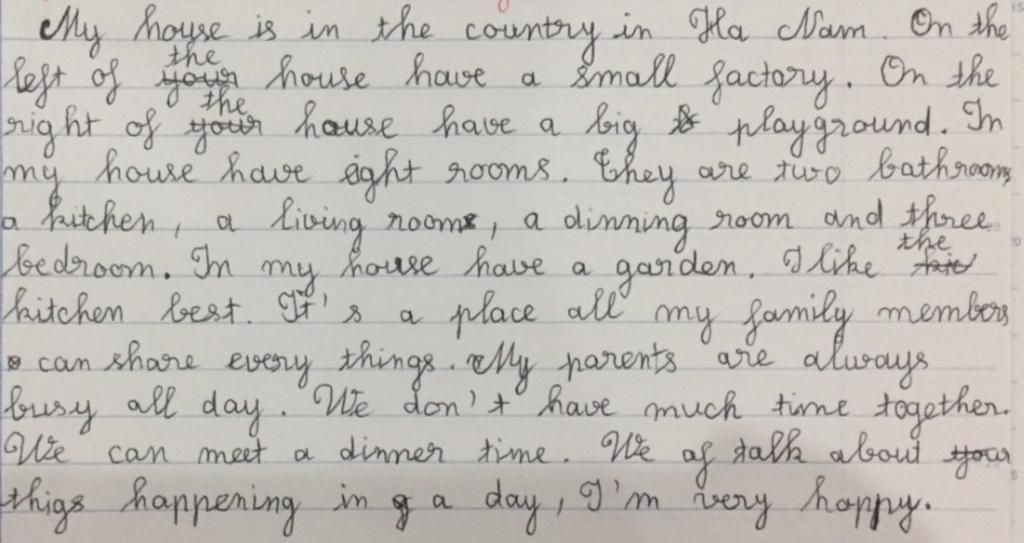 My house is in the country in Ha Nam. On the
left of the house have a small factory. On the
right of the house have a big playground. In
my house have eight rooms. They are two bathrooms
a kitchen, a living room, a dinning room and three
bedroom. In my house have a garden. I like the
kitchen best. It's a place all my family members
can share every things. My parents are always
busy all day. We don't have much time together.
We can meet a dinner time. We of talk about
thigs happening in a day, I'm very happy.